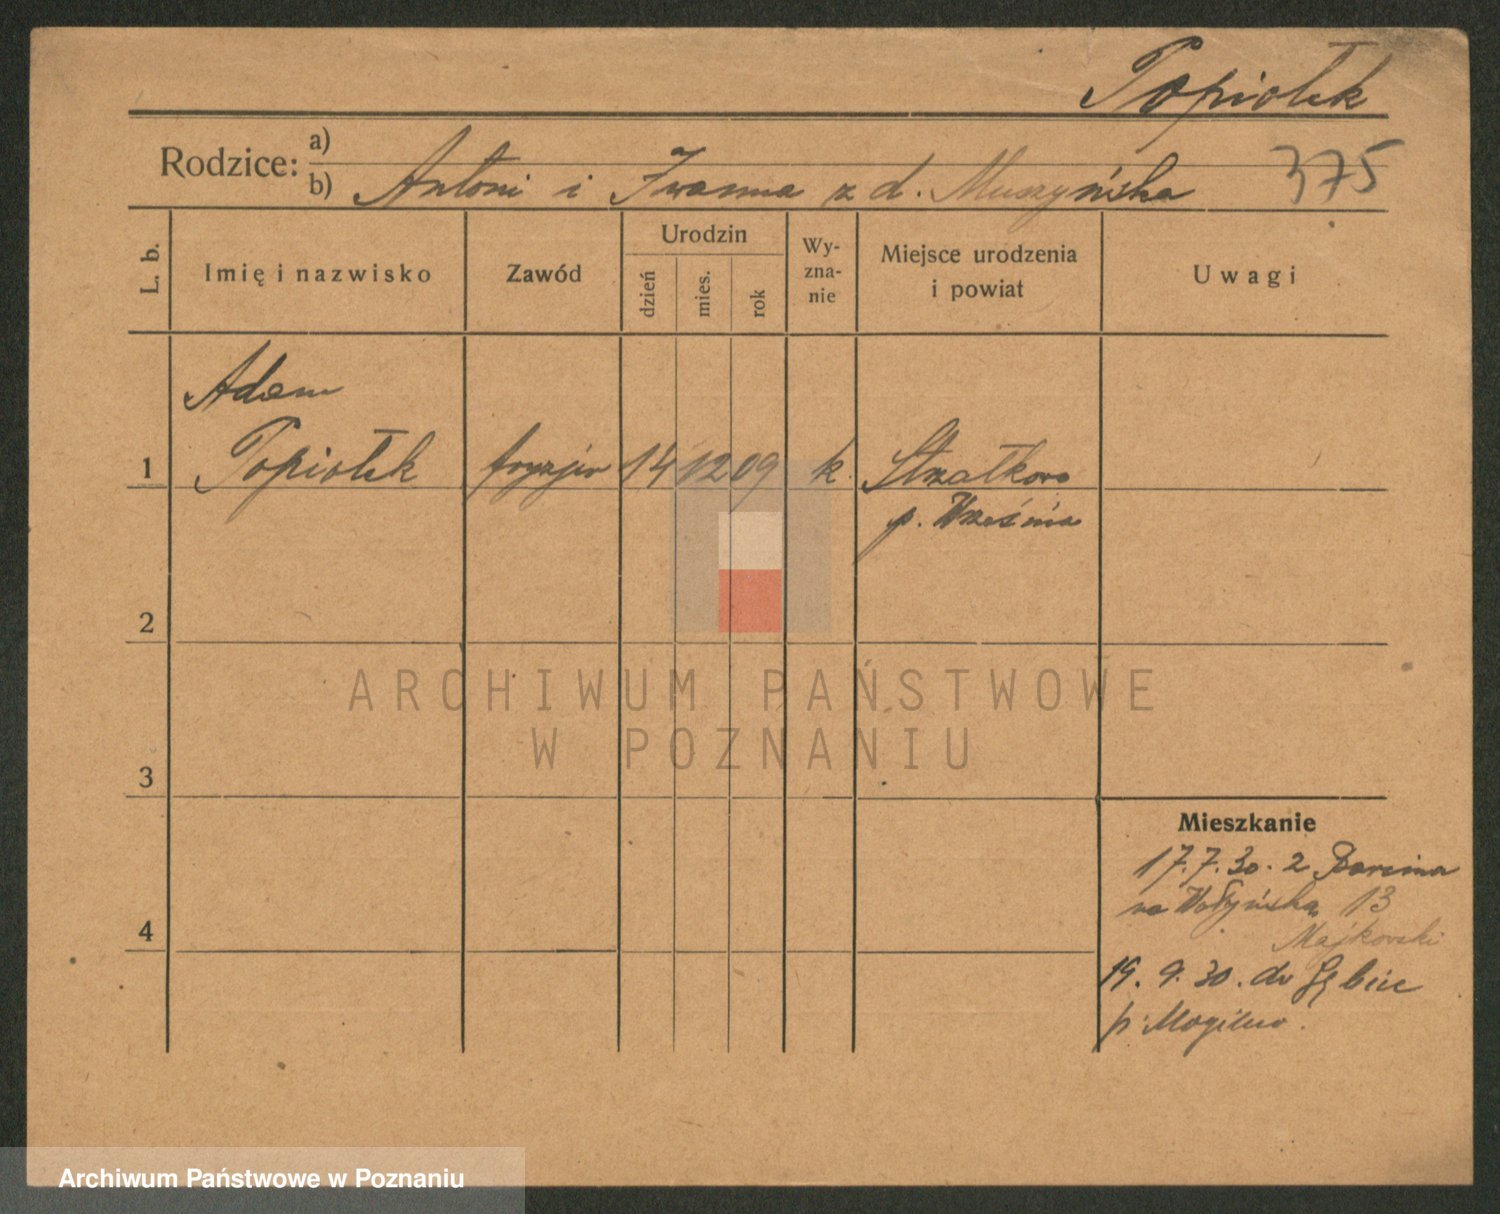 Popiołek
Rodzice: a)
b) Antoni i Iwanna z d. Muszyńska
375
L. b.
Imię i nazwisko
Zawód
Urodzin
dzień
mies.
rok
Wy-
zna-
nie
Miejsce urodzenia
i powiat
Uwagi
Adam
1 Popiołek fryzjer 14 12 09 k. Strzałkowo
p. Września
2
3
4
Mieszkanie
17.7.30. z Barcina
na Wołyńską 13
Majkowski
19. 9. 30. do Gębic
p. Mogilno.
ARCHIWUM PAŃSTWOWE
W POZNANIU
Archiwum Państwowe w Poznaniu